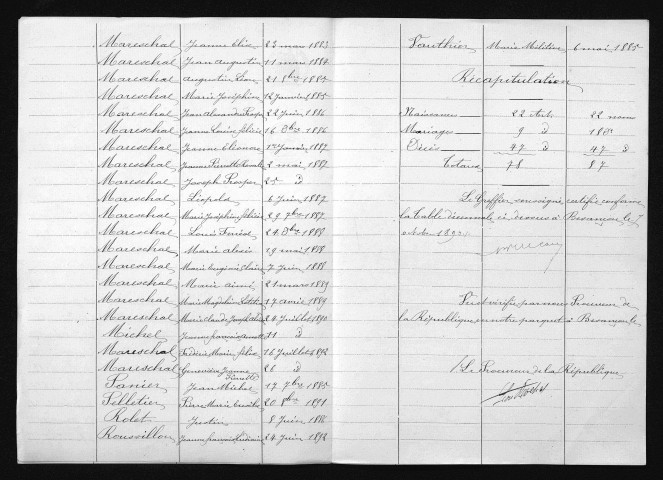 Mareschal Jeanne Elise 23 mars 1883
Mareschal Jean Augustin 11 mars 1884
Mareschal Augustin Léon 21 8bre 1885
Mareschal Marie Joséphine 12 Janvier 1885
Mareschal Jean Alexandre 22 Juin 1886
Mareschal Jeanne Louise 16 1886
Mareschal Jeanne Eléonore 1er Janvier 1887
Mareschal Jeanne 2 mai 1887
Mareschal Joseph Prosper 25 d
Mareschal Léopold 6 Juin 1887
Mareschal Marie Joséphine 29 7bre 1887
Mareschal Louis 24 1888
Mareschal Marie Alexis 19 mai 1888
Mareschal Marie Eugénie 7 Juin 1888
Mareschal Marie Aimé 21 mars 1889
Mareschal Marie 17 avril 1889
Mareschal Marie Claude Joseph 24 Juillet 1890
Michel Jeanne 31 d
Mareschal Frédéric Marie 16 Juillet 1892
Mareschal Geneviève Jeanne 26 d
Panier Jean Michel 17 7bre 1885
Pelletier Pierre Marie 20 8bre 1891
Rolet Justin 8 Juin 1886
Roussillon Jeanne 24 Juin 1892
Vauthier Marie 6 mai 1885
Récapitulation
Naissances 22 Act. 22 noms
Mariages 9 d 18 d
Décès 47 d 47 d
Totaux 78 87
Le Greffier soussigné certifie conforme
la Table décennale ci-dessus à Besançon le 7
octobre 1893
Vu et vérifié par nous Procureur de
la République en notre parquet à Besançon le
Le Procureur de la République